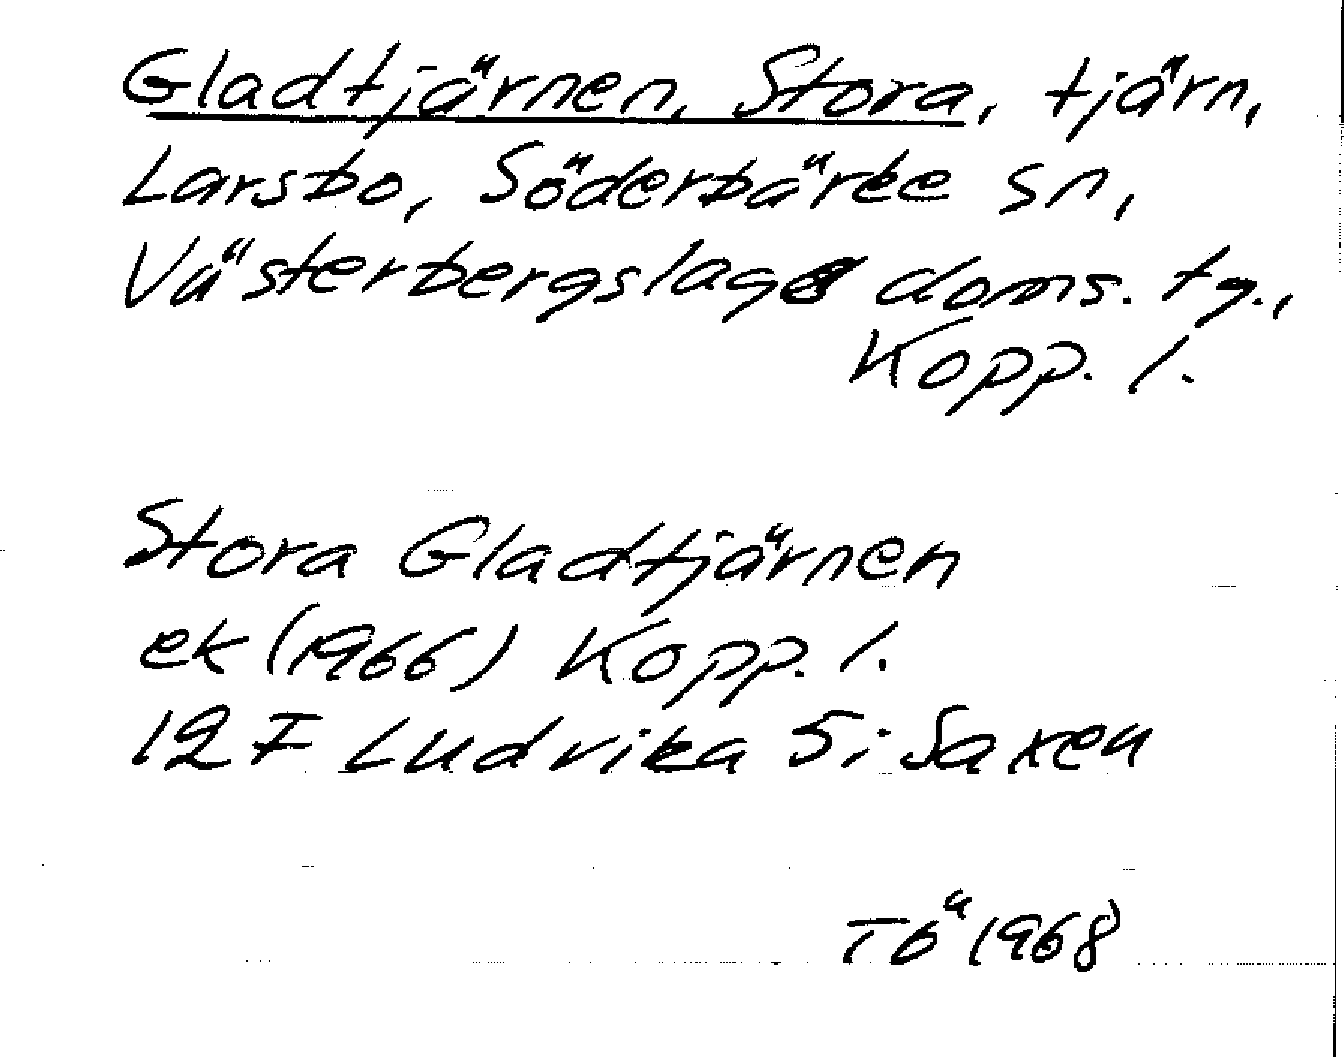 Gladtjärnen, Stora, tjärn,
Larsbo, Söderbärke sn,
Västerbergslags doms. tg.,
Kopp. l.
Stora Gladtjärnen
ek (1966) Kopp. l.
12 F Ludvika 5i Saxen
TÖ 1968